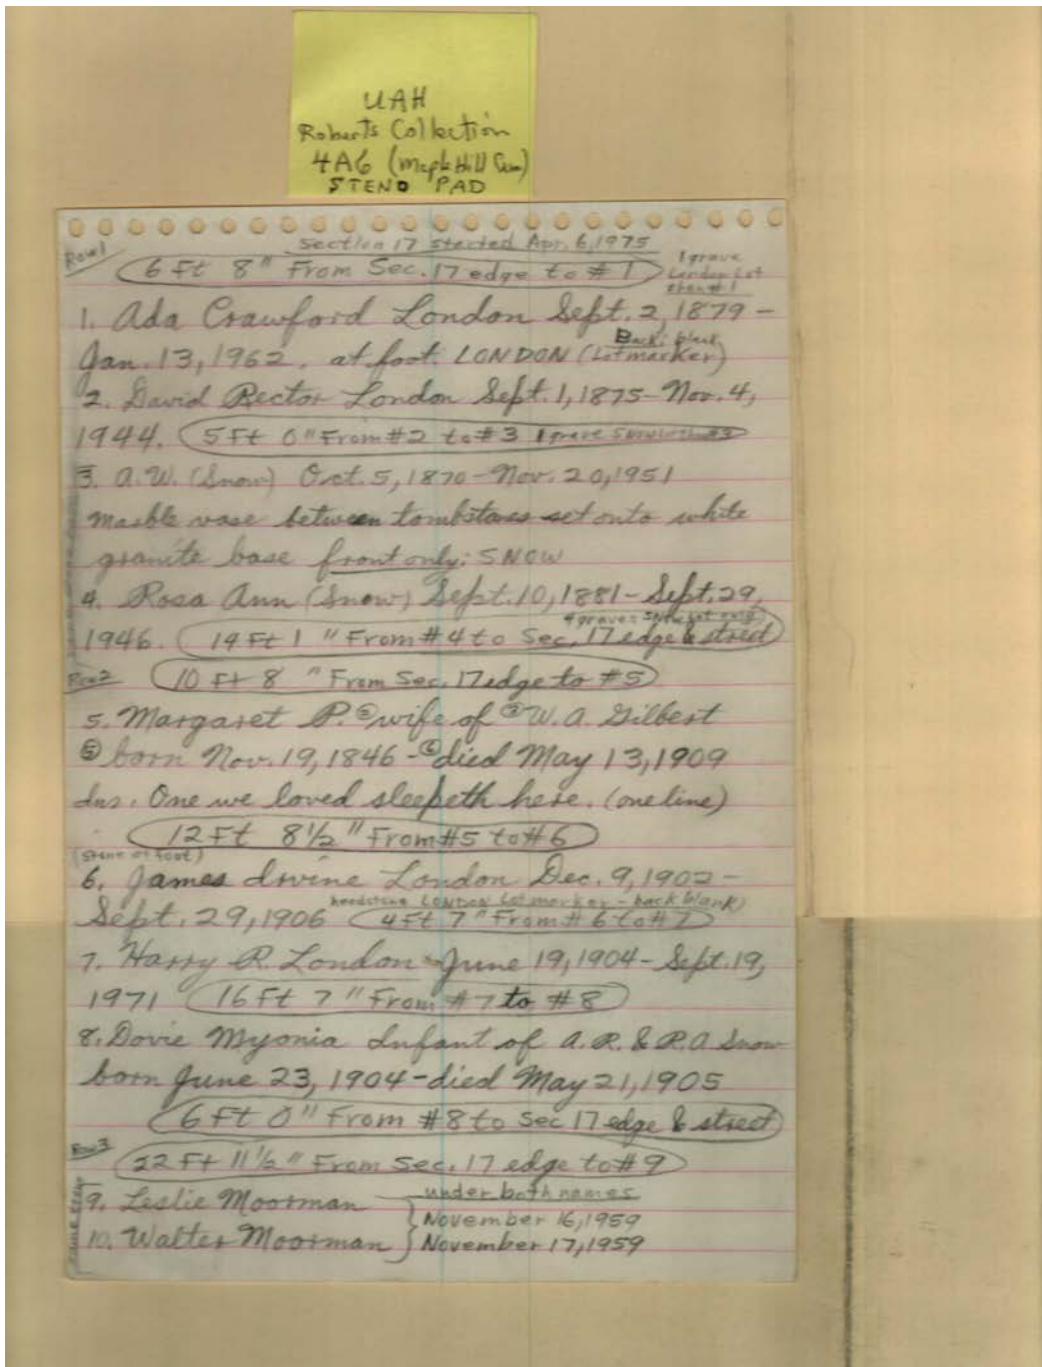 UAH
Roberts Collection
4A6 (Maple Hill Cem)
STENO PAD
Section 17 started Apr. 6, 1975
Row 1
6 Ft 8" From Sec. 17 edge to #1
1 grave
London Lot
1. Ada Crawford London Sept. 2, 1879 -
Back: blank
Jan. 13, 1962. at foot. LONDON (Lot marker)
2. David Rector London Sept. 1, 1875 - Nov. 4,
1944. 5 Ft 0" From #2 to #3 1 grave
3. A.W. (Snow) Oct. 5, 1870 - Nov. 20, 1951
marble vase between tombstones set onto white
granite base front only: SNOW
4. Rosa Ann (Snow) Sept. 10, 1881 - Sept. 29,
4 graves Snow Lot
1946. 14 Ft 1 " From #4 to Sec. 17 edge & street
Row 2 10 Ft 8 " From Sec. 17 edge to #5
5. Margaret P. wife of W. A. Gilbert
⑤ born Nov. 19, 1846 - ⑥ died May 13, 1909
Ins. One we loved sleepeth here. (one line)
12 Ft 8 1/2 " From #5 to #6
(stone at foot)
6. James Irvine London Dec. 9, 1902 -
headstone LONDON Lot marker - back blank)
Sept. 29, 1906 4 Ft 7 " From #6 to #7
7. Harry R. London June 19, 1904 - Sept. 19,
1971 16 Ft 7 " From #7 to #8
8. Dovie Myonia Infant of A. R. & R. A Snow
born June 23, 1904 - died May 21, 1905
6 Ft 0" From #8 to Sec 17 edge & street
Row 3 22 Ft 11 1/2 " From Sec. 17 edge to #9
under both names
9. Leslie Moorman
November 16, 1959
10. Walter Moorman
November 17, 1959